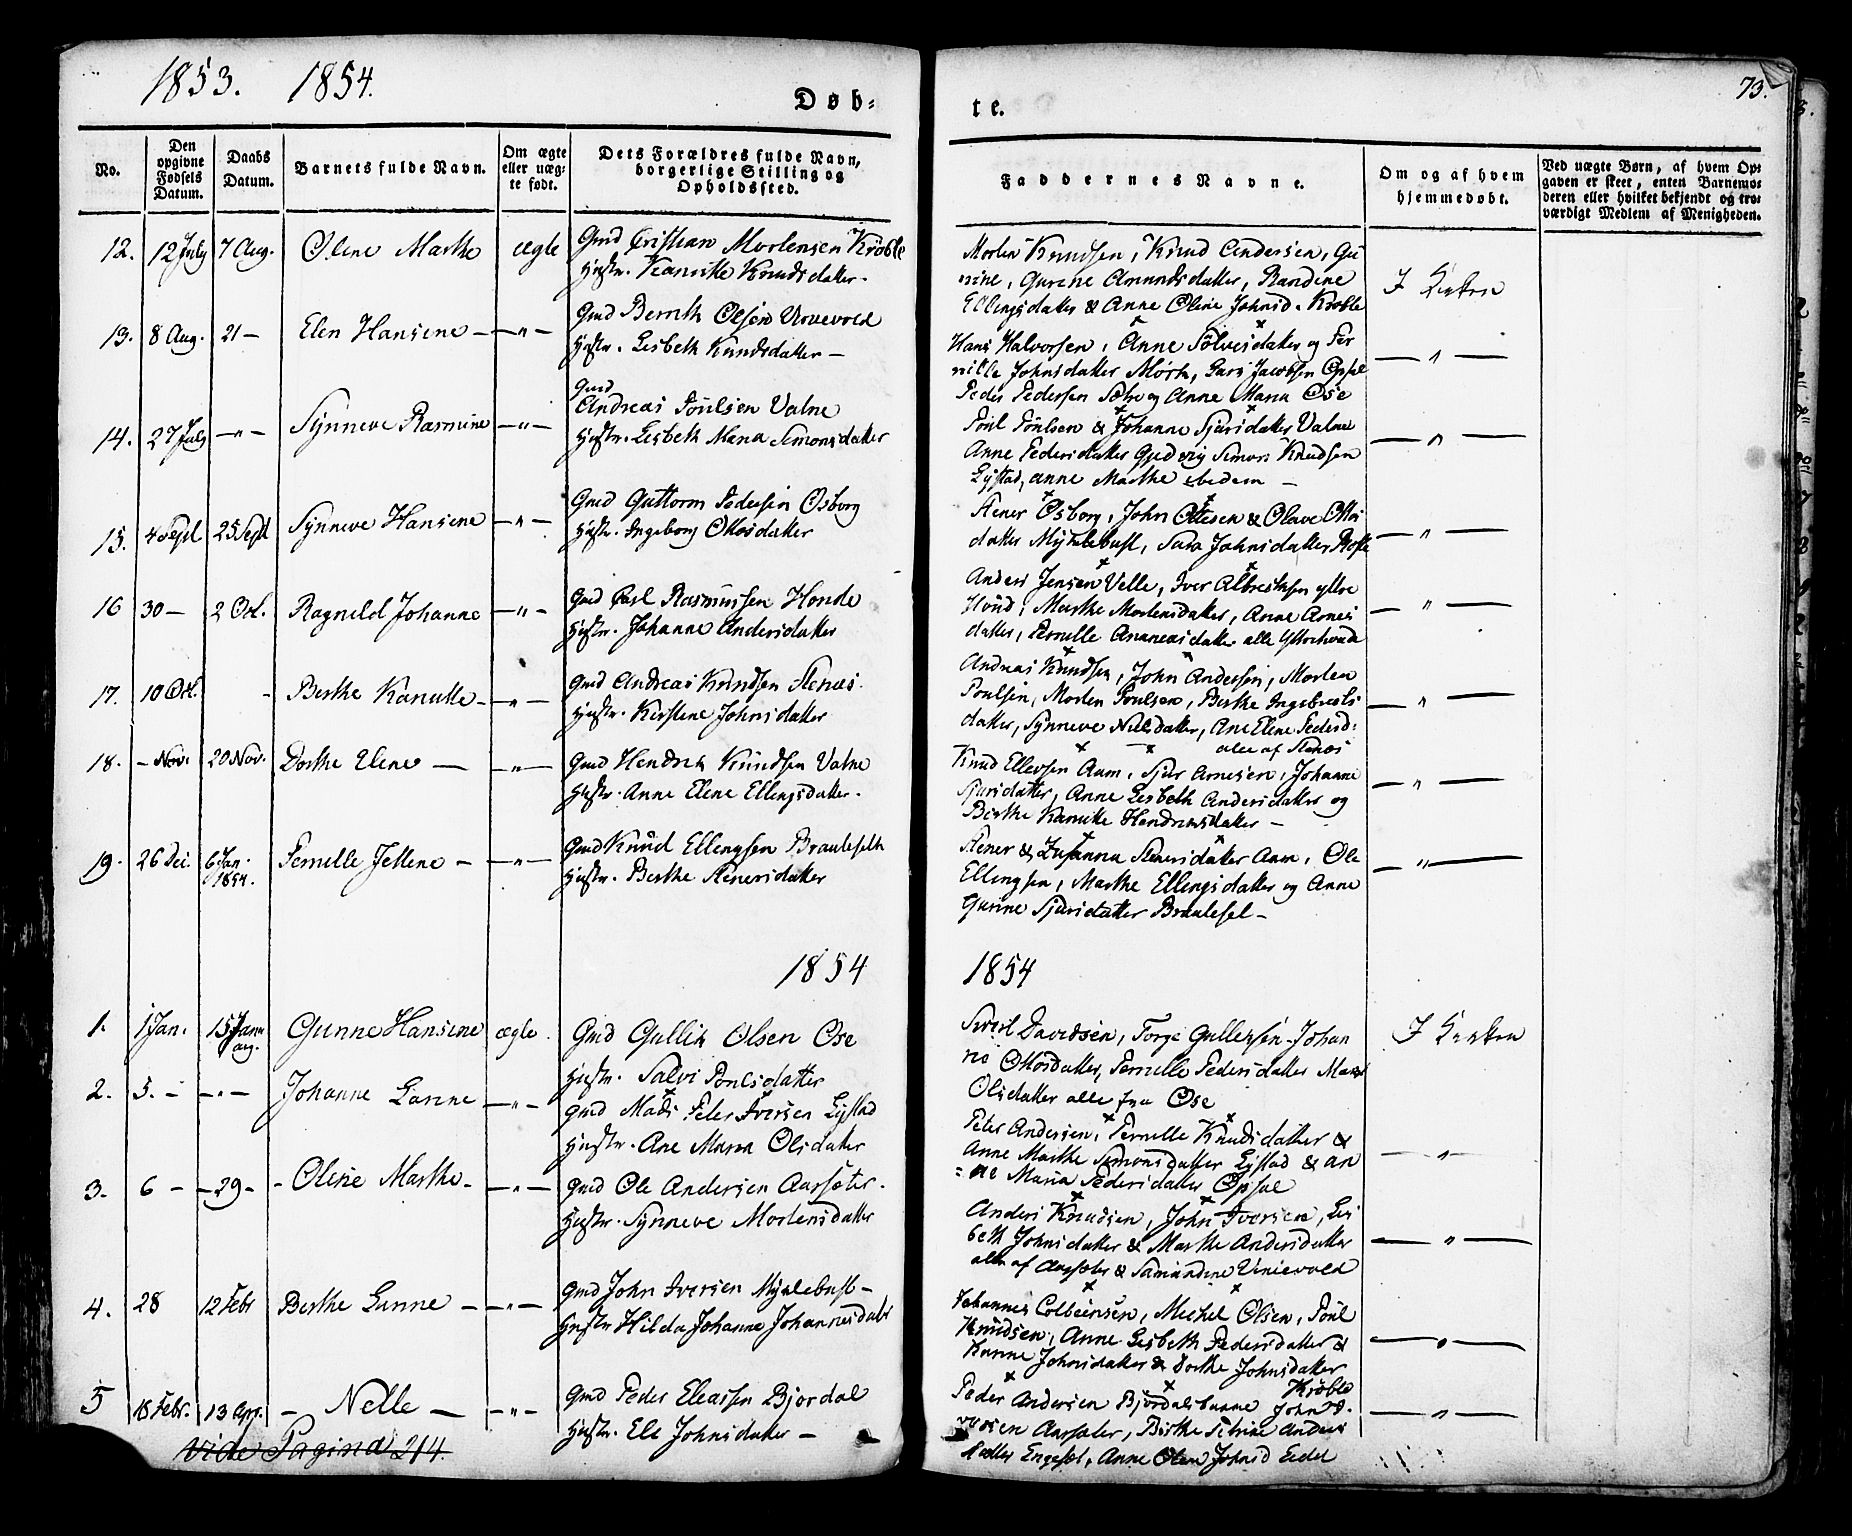 1853. 1854.
Døb-
te.
73.
No.
Den opgivne Fødsels Datum.
Daabs Datum.
Barnets fulde Navn.
Om ægte eller uægte født.
Dets Forældres fulde Navn, borgerlige Stilling og Opholdssted.
Faddernes Navne.
Om og af hvem hjemmedøbt.
Ved uægte Børn, af hvem Opgaven er skeet, enten Barnemoderen eller hvilket bekjendt og troværdigt Medlem af Menigheden.
12. 12 July 7 Aug. Oline Marthe ægte Gmd Cristian Mortensen Krøble
Hustr. Kanutte Knudsdatter.
Morten Knudsen, Knud Andersen, Gu
rine, Gurine Amundsdatter, Randine
Ellingsdatter & Anne Oline Johnsd. Krøble
I Kirken
13. 8 Aug. 21 — Elen Hansine — — " — Gmd Bernth Olsen
Hustr. Lisbeth Knudsdatter —
Hans Halvorsen, Anne Sølvesdatter og Per
nille Johnsdatter Mørk, Lars Jacobsen Opsal
Peder Pedersen Sætre og Anne Maria Ose
— " —
14. 27 July — " — Synneve Rasmine — " — Gmd
Andreas Poulsen Valne
Hustr. Lisbeth Maria Simonsdatter
Poul Poulsen & Johanne Sjursdatter Valne
Anne Pedersdatter Simon Knudsen
Lystad, Anne Marthe ibidem —
— " —
15. 4 Sept 25 Sept Synneve Hansine — " — Gmd Guttorm Pedersen Osborg
Hustr. Ingeborg Ottosdatter
Stener Osborg, John Olesen & Olave Ottos
datter Myklebust, Sara Johnsdatter
— " —
16 30 — 2 Oct. Ragnild Johanne — " — Gmd Carl Rasmussen Honde
Hustr. Johanne Andersdatter
Anders Jensen Velle, Iver Albrektsen ytre
Houd, Marthe Mortensdatter, Anne Arnes
datter, Pernille Ananiasdatter alle Ytrehonde
— " —
17. 10 Oct. - Berthe Kanutte — " — Gmd Andreas Knudsen Stenes.
Hustr. Kirstine Johnsdatter
Andreas Knudsen, John Andersen, Morten
Poulsen, Morten Poulsen, Berthe Ingebrets
datter, Synneve Nilsdatter, Ane Elene Pedersd.
alle af Stenes
— " —
18. — Nov. 20 Nov. Dorthe Elene — — " — Gmd Hendrik Knudsen Valne
Hustr. Anne Elene Ellingsdatter.
Knud Ellevsen Aam, Sjur Arnesen, Johanne
Sjursdatter, Anne Lisbeth Andersdatter og
Berthe Kanutte Hendriksdatter —
— " —
19. 26 Dec. 6 Jan. 1854. Pernille Jettene — — " — Gmd Knud Ellingsen
Hustr. Berthe Stenersdatter
Stener & Zusanna Stenersdatter Aam, Ole
Ellingsen, Marthe Ellingsdatter og Anne
Gurine Sjursdatter
— " —
1854
1854
1. 1 Jan. 15 Janu
Gunne Hansine ægte Gmd Gullik Olsen Ose
Hustr. Salvi Poulsdatter
Sivert Davidsen, Torge Gulleksen, Johan
ne Ottosdatter, Pernille Pedersdatter
Olsdatter alle fra Ose
I Kirken
2. 5. — — " — Johanne Larine — " — Gmd Mads Peter Iversen Lystad
Hustr. Ane Maria Olsdatter
Peter Andersen, Pernille Knudsdatter &
Anne Marthe Simonsdatter Lystad & An
ne Maria Pedersdatter Opsal
— " —
3. 6 — — 29 — Oline Marthe — " — Gmd Ole Andersen Aarsæter.
Hustr. Synneve Mortensdatter
Anders Knudsen, John Iversen, Lis
beth Johnsdatter & Marthe Andersdatter
alle af Aarsæter &
— " —
4. 28 12 Febr Berthe Gunne — — " — Gmd John Iversen Myklebust —
Hustr Hilda Johanne Johannesdatt
Johannes Colbeinsen, Michel Olsen, Poul
Knudsen, Anne Lisbeth Pedersdatter &
Karine Johnsdatter & Dorthe Johnsdatter
Krøble
— " —
5 18 Febr. 13 Apr. — Nelle — — " — Gmd Peder Eleassen Bjordal
Hustr. Ele Johnsdatter —
Peder Andersen Bjordalsbanne John I-
versen Aarsæter, Birthe Petrine Anders
datter Engeset, Anne Oline Johnsd
— " —
Vide Pagina 214.